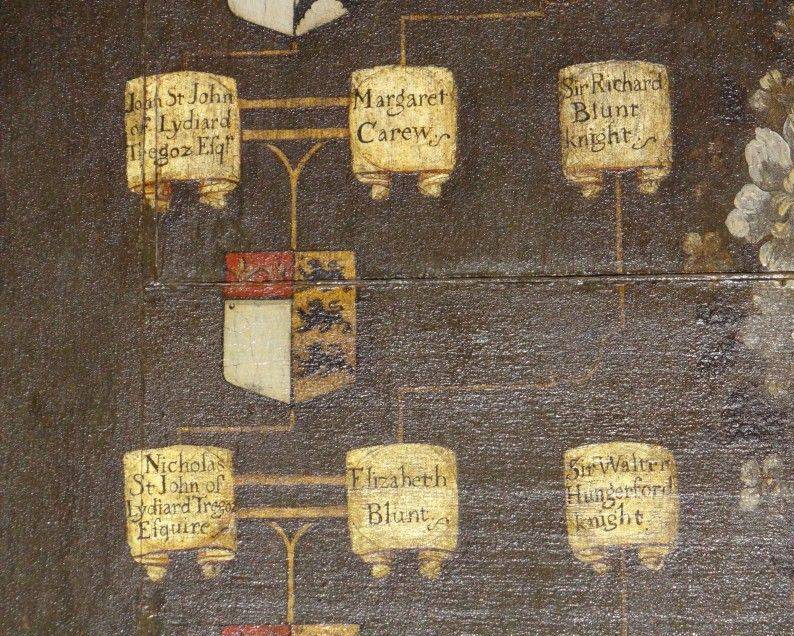 John St John
of Lydiard
Tregoz Esqr
Margaret
Carew
Sir Richard
Blunt
knight
Nicholas
St John of
Lydiard Tregoz
Esquire
Elizabeth
Blunt
Sir Walter
Hungerford
knight